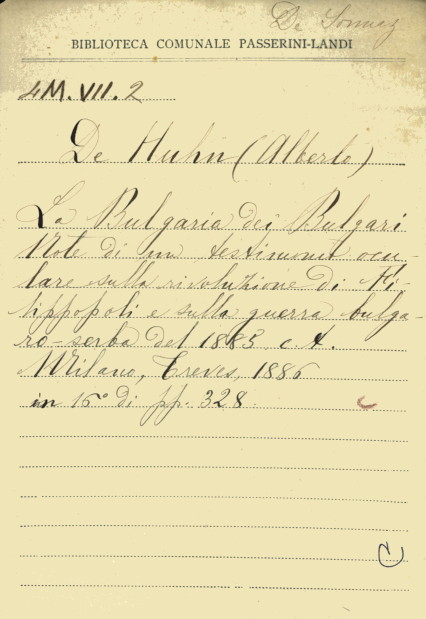 De Sonnaz
BIBLIOTECA COMUNALE PASSERINI-LANDI
4M.VII.2
De Huhn (Alberto)
La Bulgaria dei Bulgari
Note di un testimonio ocu-
lare sulla rivoluzione di Fi-
lippopoli e sulla guerra bulga-
ro-serba del 1885 c. A.
Milano, Treves, 1886
in 16° di pp. 328